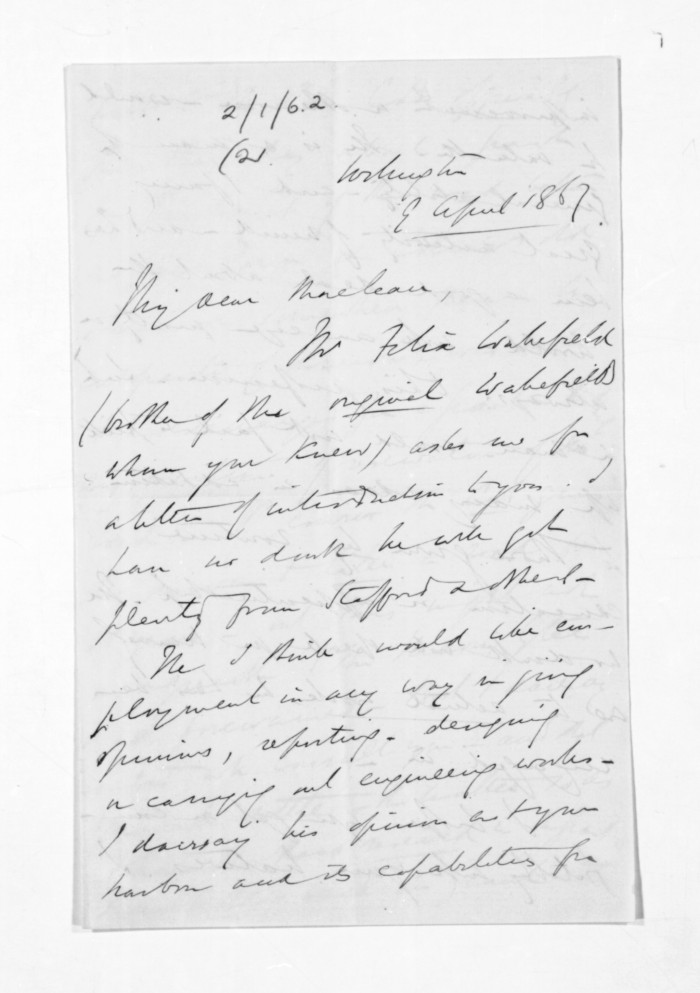 2/1/62.
(2).
Wellington
9 April 1867.
My dear Maclean,
Mr Felix Wakefield
(brother of the original Wakefield
whom you knew) asks me for
a letter of introduction to you. I
have no doubt he will get
plenty from Stafford & others –
He I think would like em-
ployment in any way in giving
opinions, reporting – designing
or carrying out engineering works –
I daresay his opinion as to your
harbour and its capabilities for